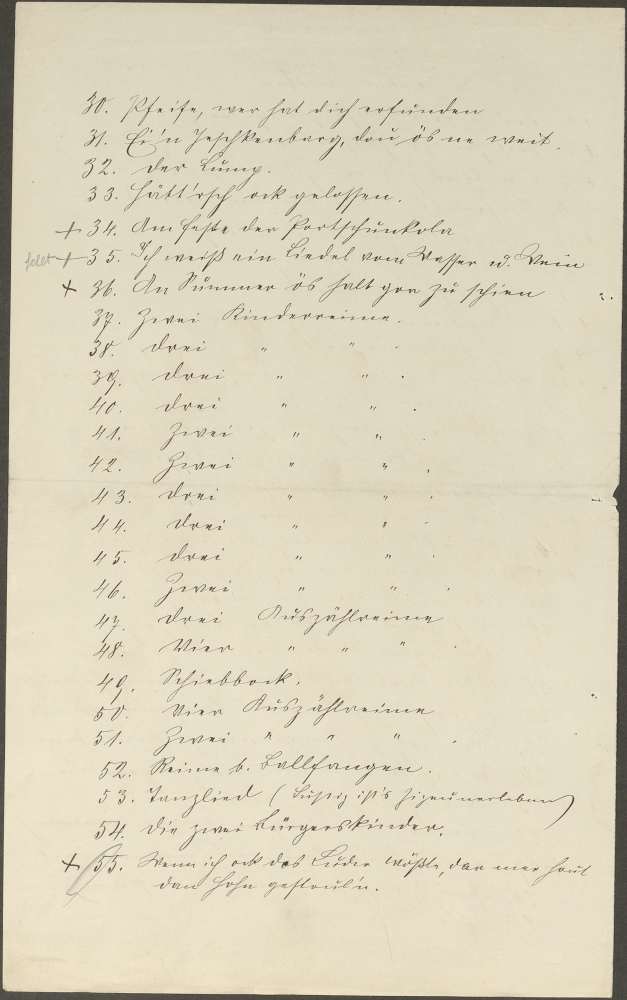 30. Pfeife, wer hat dich erfunden
31. Ei'n Jeschkenbarg, dou ös ne weit.
32. Der Lump.
33. Hätt'rsch ock gelossen.
+ 34. Am Feste der Portschunkola
+ 35. Ich weiß ein Liedel vom Wasser u. Wein
x 36. Än Summer ös halt gor zu schien
37. Zwei Kinderreime.
38. Drei " " .
39. Drei " " .
40. Drei " " .
41. Zwei " " .
42. Zwei " " .
43. Drei " " .
44. Drei " " .
45. Drei " " .
46. Zwei " " .
47. Drei Auszählreime
48. Vier " " " .
49. Schiebbock.
50. Vier Auszählreime
51. Zwei " " " .
52. Reime b. Ballfangen.
53. Tanzlied (Lustig ist's Zigeunerleben)
54. Die zwei Bürgerskinder.
+ 55. Wenn ich ock dos Luder wößte, dar mer hout
dan Hohn gestouln.